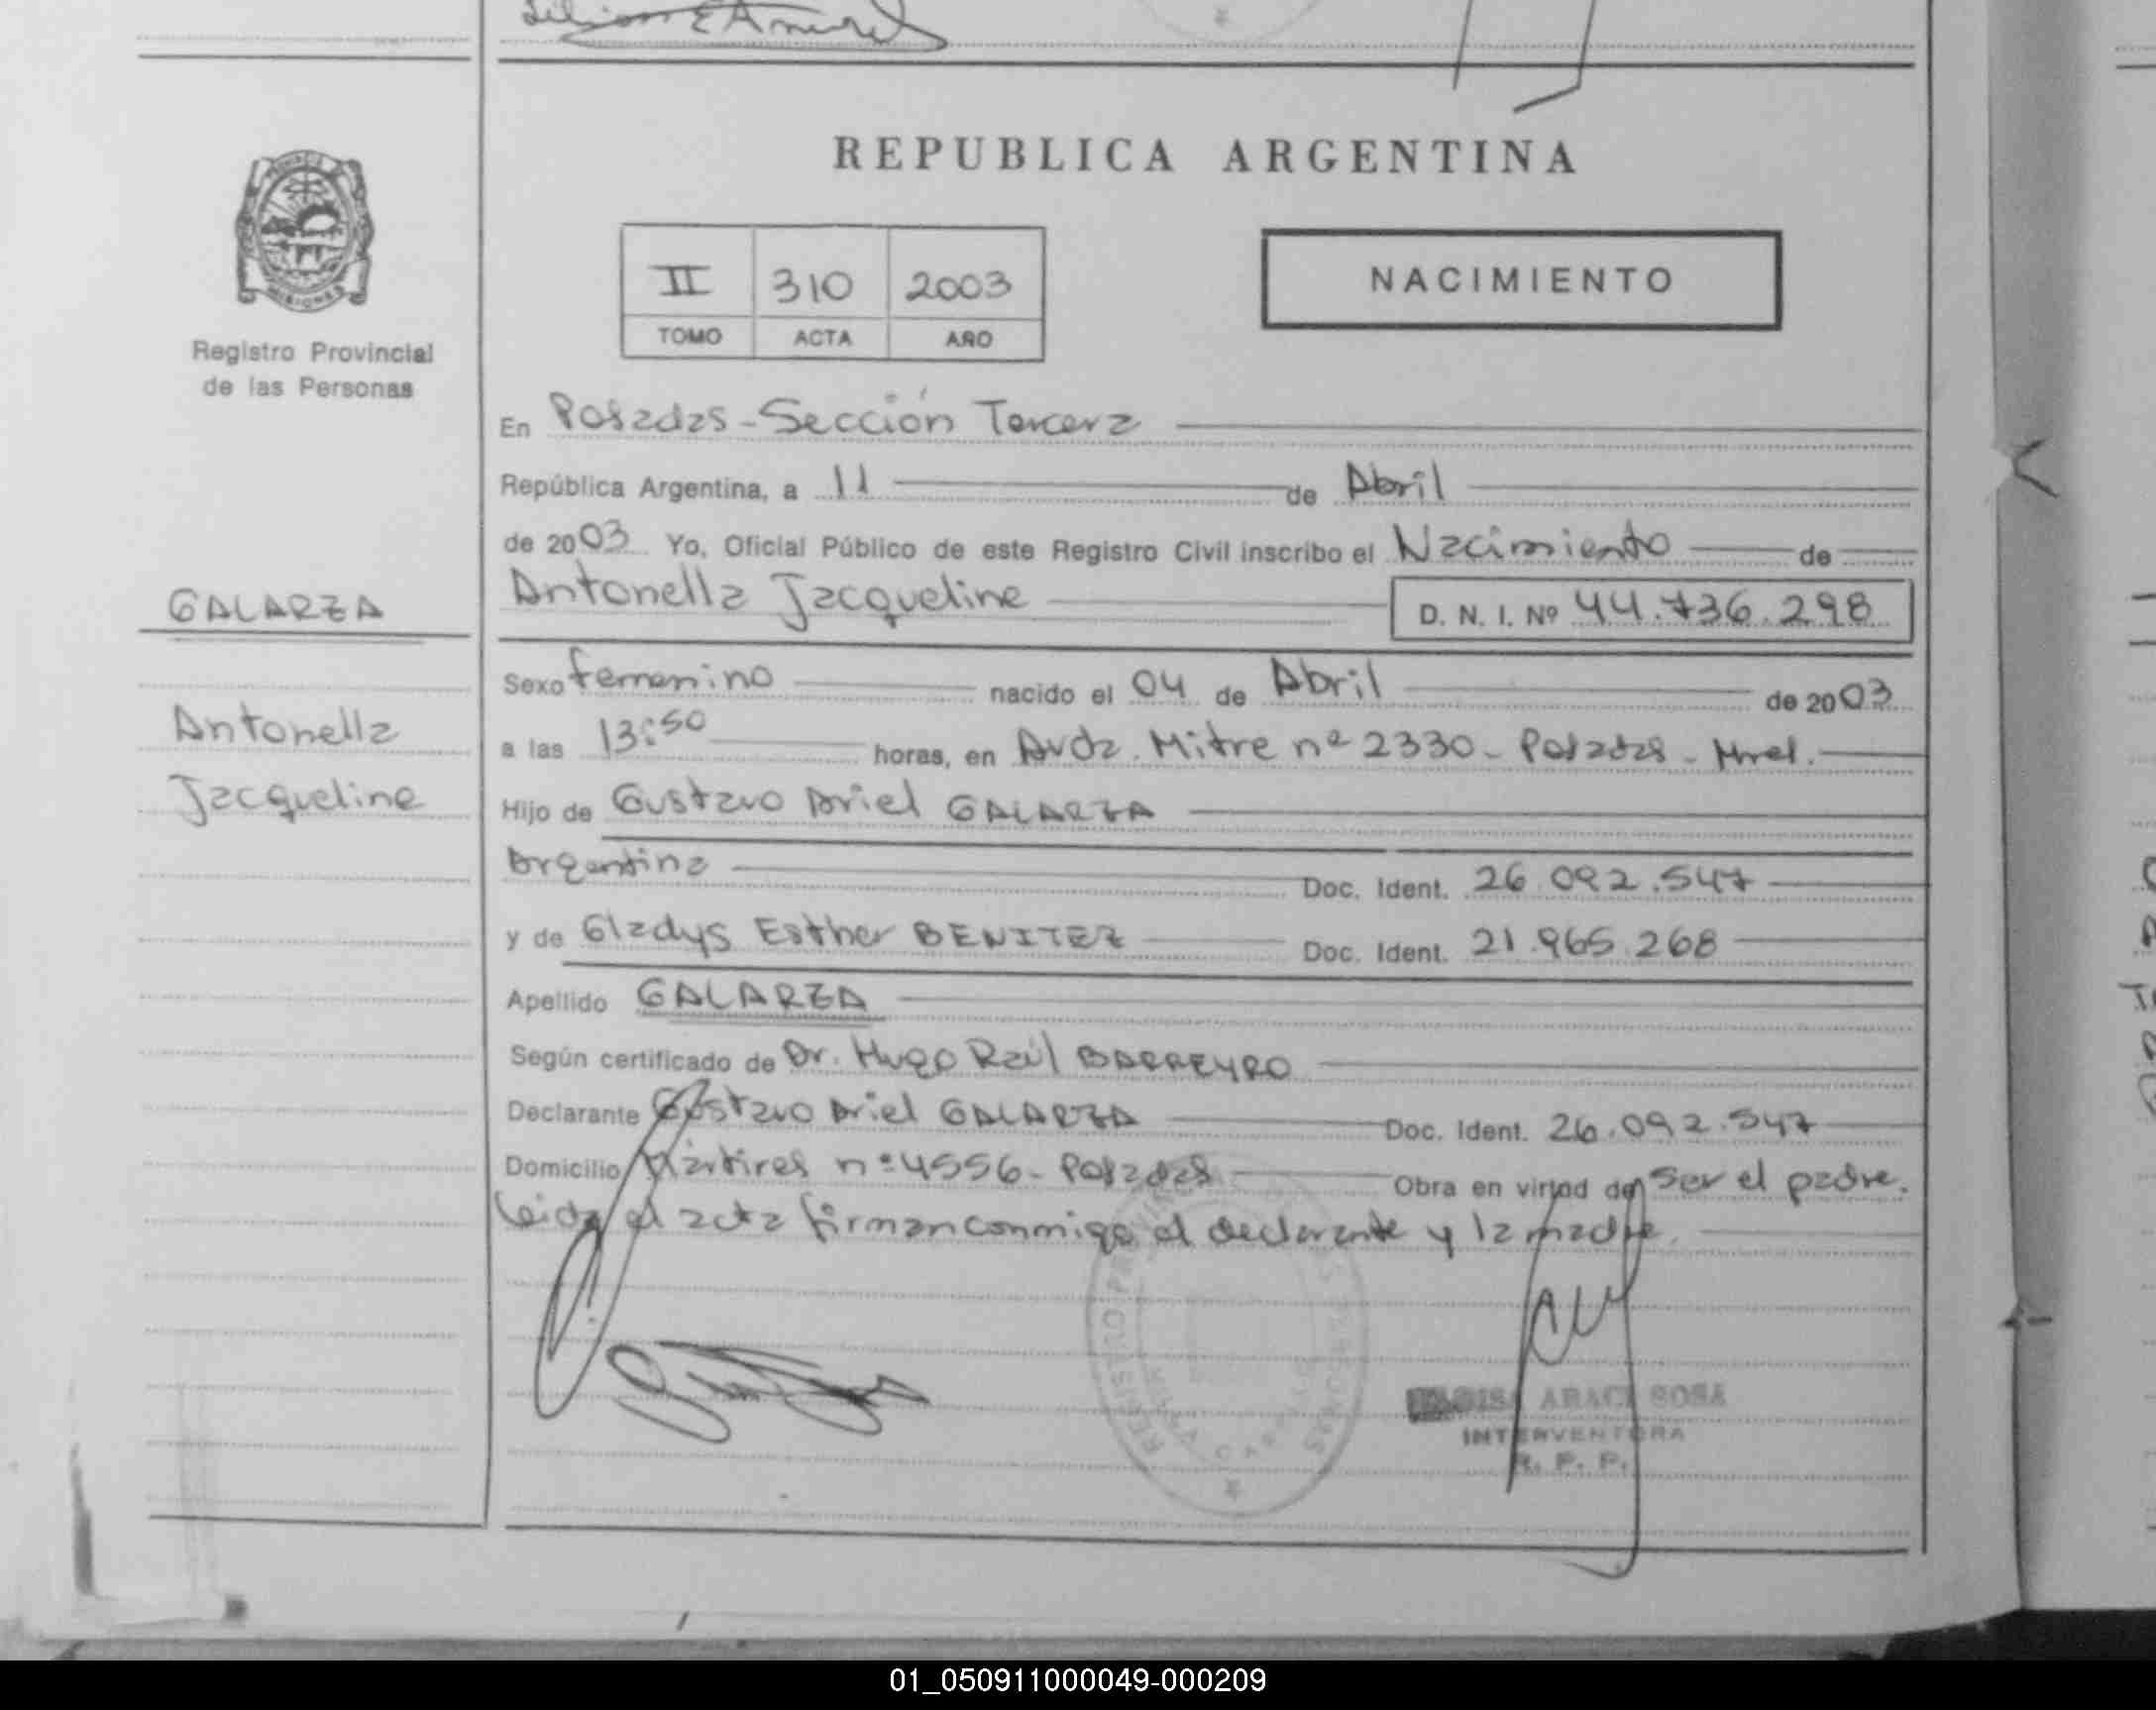 REPUBLICA ARGENTINA
MISIONES
Registro Provincial
de las Personas
II 310 2003
TOMO ACTA AÑO
NACIMIENTO
En Posadas - Sección Tercera
República Argentina, a 11 de Abril
de 2003 Yo, Oficial Público de este Registro Civil inscribo el Nacimiento de
GALARZA
Antonella Jacqueline D. N. I. Nº 44.736.298
Sexo femenino nacido el 04 de Abril de 2003
Antonella
a las 13:50 horas, en Avda. Mitre nº 2330 - Posadas -
Jacqueline
Hijo de Gustavo Ariel GALARZA
Argentina Doc. Ident. 26.092.547
y de Gladys Esther BENITEZ Doc. Ident. 21.965.268
Apellido GALARZA
Según certificado de Dr. Hugo Raúl BARREYRO
Declarante Gustavo Ariel GALARZA Doc. Ident. 26.092.547
Domicilio Mártires nº 4556 - Posadas Obra en virtud de ser el padre.
Leida el acta firman conmigo el declarante y la madre.
REGISTRO PROVINCIAL DE LAS PERSONAS
ARACI SOSA
INTERVENTORA
R. P. P.
01_050911000049-000209